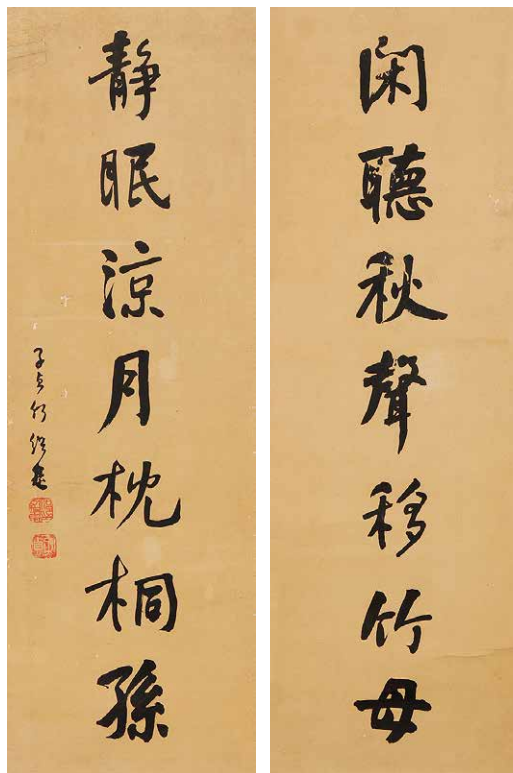 閑聽秋聲移竹母
靜眠涼月枕桐孫
子貞何紹基